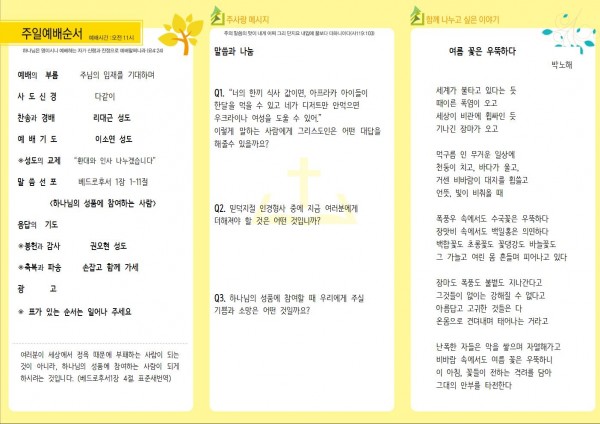 주일예배순서
예배시간 : 오전11시
하나님은 영이시니 예배하는 자가 신령과 진정으로 예배할찌니라 (요4:24)
예배의 부름 주님의 임재를 기대하며
사 도 신 경 다같이
찬송과 경배 리대군 성도
예 배 기 도 이소연 성도
※성도의 교제 "환대와 인사 나누겠습니다"
말 씀 선 포 베드로후서 1장 1-11절
<하나님의 성품에 참여하는 사람>
응답의 기도
※봉헌과 감사 권오현 성도
※축복과 파송 손잡고 함께 가세
광 고
※ 표가 있는 순서는 일어나 주세요
여러분이 세상에서 정욕 때문에 부패하는 사람이 되는
것이 아니라, 하나님의 성품에 참여하는 사람이 되게
하시려는 것입니다. (베드로후서1장 4절. 표준새번역)
주사랑 메시지
주의 말씀의 맛이 내게 어찌 그리 단지요 내입에 꿀보다 더하니이다(시119:103)
말씀과 나눔
Q1. "너의 한끼 식사 값이면, 아프라카 아이들이
한달을 먹을 수 있고 네가 디저트만 안먹으면
우크라이나 여성을 도울 수 있어."
이렇게 말하는 사람에게 그리스도인은 어떤 대답을
해줄수 있을까요?
Q2. 믿덕지절 인경형사 중에 지금 여러분에게
더해져야 할 것은 어떤 것입니까?
Q3. 하나님의 성품에 참여할 때 우리에게 주실
기쁨과 소망은 어떤 것일까요?
함께 나누고 싶은 이야기
여름 꽃은 우뚝하다
박노해
세계가 불타고 있다는 듯
때이른 폭염이 오고
세상이 비관에 휩싸인 듯
기나긴 장마가 오고
먹구름 인 무거운 일상에
천둥이 치고, 바다가 울고,
거센 비바람이 대지를 휩쓸고
언뜻, 빛이 비춰올 때
폭풍우 속에서도 수국꽃은 우뚝하다
장맛비 속에서도 백일홍은 의연하다
백합꽃도 초롱꽃도 꽃댕강도 바늘꽃도
그 가늘고 여린 몸 흔들며 피어나고 있다
장마도 폭풍도 불볕도 지나간다고
그것들이 없이는 강해질 수 없다고
아름답고 고귀한 것들은 다
온몸으로 견뎌내며 태어나는 거라고
난폭한 자들은 악을 쌓으며 자멸해가고
비바람 속에서도 여름 꽃은 우뚝하니
이 아침, 꽃들이 전하는 격려를 담아
그대의 안부를 타전한다